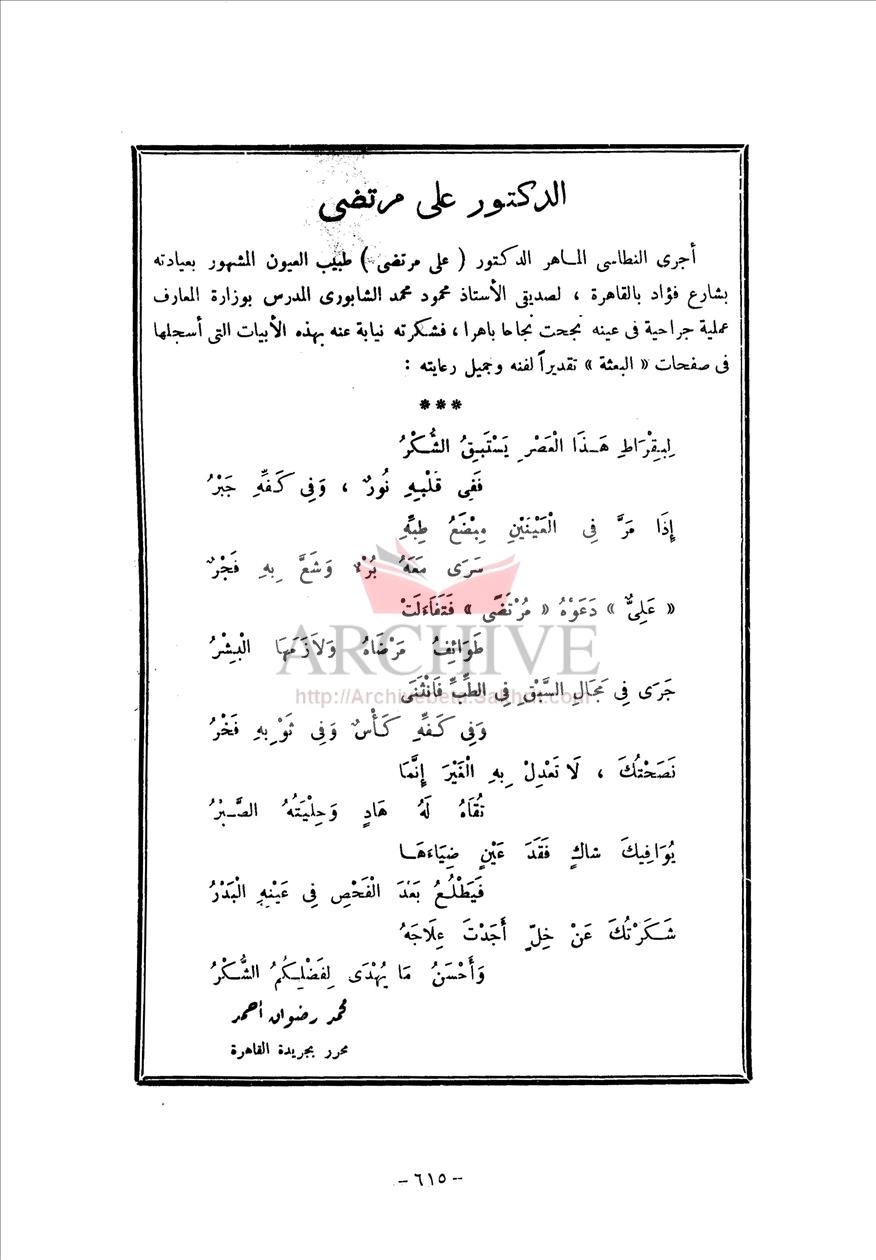 الدكتور على مرتضى
أجرى النطاسى الماهر الدكتور ( على مرتضى ) طبيب العيون المشهور بعيادته
بشارع فؤاد بالقاهرة ، لصديقى الأستاذ محمود محمد الشابورى المدرس بوزارة المعارف
عملية جراحية فى عينه نجحت نجاحا باهرا ، فشكرته نيابة عنه بهذه الأبيات التى أسجلها
فى صفحات « البعثة » تقديراً لفنه وجميل رعايته :
***
لِبِقْرَاطِ هَـذَا الْعَصْرِ يَسْتَبِقُ الشُّكْرُ
فَفِى قَلْبِهِ نُورٌ ، وَفِى كَفِّهِ جَبْرُ
إِذَا مَرَّ فِى الْعَيْنَيْنِ مِبْضَعُ طِبِّهِ
سَرَى مَعَهُ بُرْءٌ وَشَعَّ بِهِ فَجْرُ
« عَلِىٌّ » دَعَوْهُ « مُرْتَضًى » فَتَفَاءَلَتْ
طَوَائِفُ مَرْضَاهُ وَلاَزَمَهَا الْبِشْرُ
جَرَى فِى مَجَالِ السَّبْقِ فِى الطِّبِّ فَانْثَنَى
وَفِى كَفِّهِ كَأْسٌ وَفِى ثَوْبِهِ فَخْرُ
نَصَحْتُكَ ، لَا تَعْدِلْ بِهِ الْغَيْرَ إِنَّمَا
تُقَاهُ لَهُ هَادٍ وَحِلْيَتُهُ الصَّبْرُ
يُوَافِيكَ شاكٍ فَقَدَ عَيْنٍ ضِيَاءَهَـا
فَيَطْلُعُ بَعْدَ الْفَحْصِ فِى عَيْنِهِ الْبَدْرُ
شَكَرْتُكَ عَنْ خِلٍّ أَجَدْتَ عِلَاجَهُ
وَأَحْسَنُ مَا يُهْدَى لِفَضْلِكُمُ الشُّكْرُ
محمد رضوان أحمد
محرر بجريدة القاهرة
ARCHIVE
http://Archivebeta.Sakhrit.com
- ٦١٥ -